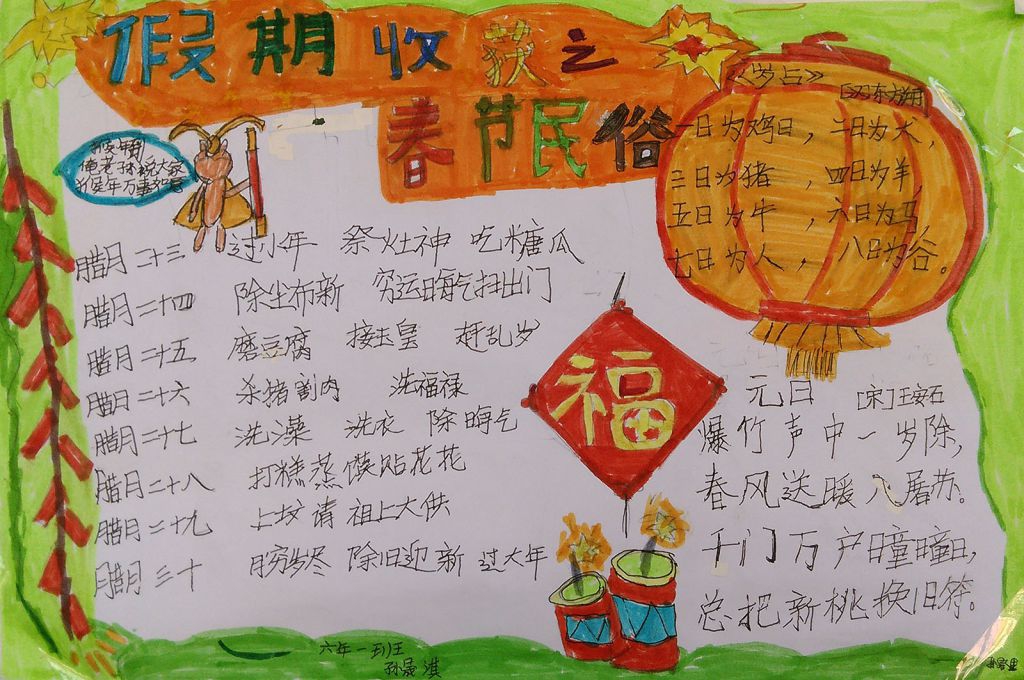 假期收获之
春节民俗
俺老孙祝大家
猴年万事如意
《岁占》
[汉]东方朔
一日为鸡日，二日为犬，
三日为猪，四日为羊，
五日为牛，六日为马，
七日为人，八日为谷。
腊月二十三 过小年 祭灶神 吃糖瓜
腊月二十四 除尘布新 穷运晦气扫出门
腊月二十五 磨豆腐 接玉皇 赶乱岁
腊月二十六 杀猪割肉 洗福禄
腊月二十七 洗澡 洗衣 除晦气
腊月二十八 打糕蒸馍贴花花
腊月二十九 上坟请祖上大供
腊月三十 月穷岁尽 除旧迎新 过大年
福
元日 [宋]王安石
爆竹声中一岁除，
春风送暖入屠苏。
千门万户曈曈日，
总把新桃换旧符。
六年一班